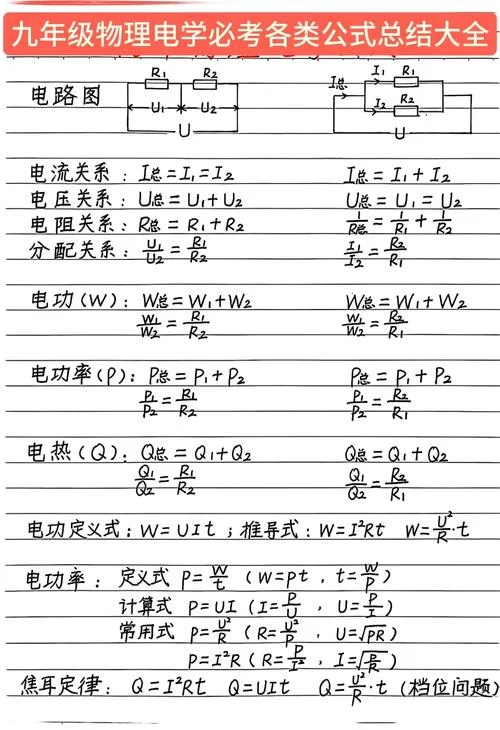 九年级物理电学必考各类公式总结大全
电路图 R₁ R₂ U₁ U₂ U I总 I₁ R₁ I₂ R₂ U
电流关系：I总=I₁=I₂ I总=I₁+I₂
电压关系：U总=U₁+U₂ U总=U₁=U₂
电阻关系：R总=R₁+R₂ 1/R总=1/R₁+1/R₂
分配关系：U₁/U₂=R₁/R₂ I₁/I₂=R₂/R₁
电功(W)：W总=W₁+W₂ W总=W₁+W₂
W₁/W₂=R₁/R₂ W₁/W₂=R₂/R₁
电功率(P)：P总=P₁+P₂ P总=P₁+P₂
P₁/P₂=R₁/R₂ P₁/P₂=R₂/R₁
电热(Q)：Q总=Q₁+Q₂ Q总=Q₁+Q₂
Q₁/Q₂=R₁/R₂ Q₁/Q₂=R₂/R₁
电功定义式：W=UIt；推导式：W=I²Rt W=U²/R·t
电功率：定义式 P=W/t (W=Pt，t=W/P)
计算式 P=UI (I=P/U，U=P/I)
常用式 P=U²/R (R=U²/P，U=√PR)
P=I²R (R=P/I²，I=√P/R)
焦耳定律：Q=I²Rt Q=UIt Q=U²/R·t (档位问题)